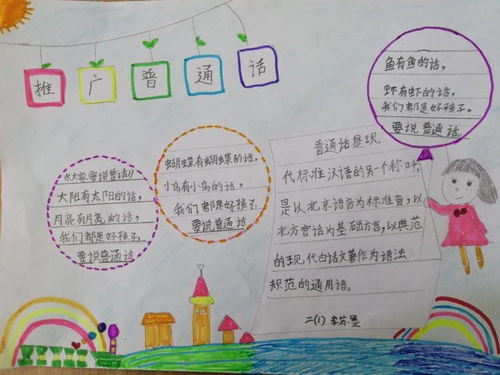 推广普通话
鱼有鱼的话，
虾有虾的话。
我们都是好孩子。
要说普通话。
蝴蝶有蝴蝶的话，
小鸟有小鸟的话，
我们都是好孩子
要说普通话
《大家要说普话》
大阳有太阳的话，
月亮有月亮的话，
我们都是好孩子，
要说普通话
普通话是现
代标准汉语的另一个称呼，
是以北京语音为标准音，以
北方官话为基础方言，以典范
的现代白话文著作为语法
规范的通用语。
二(1)